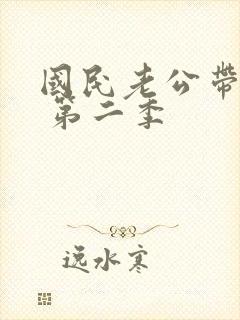 國民老公帶
第二季
逸水寒